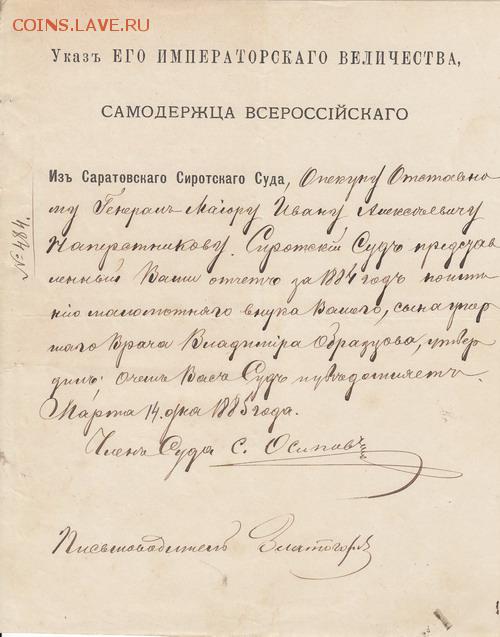 COINS.LAVE.RU
Указъ ЕГО ИМПЕРАТОРСКАГО ВЕЛИЧЕСТВА,
САМОДЕРЖЦА ВСЕРОССІЙСКАГО
№ 484.
Изъ Саратовскаго Сиротскаго Суда, Опекуну Отставно-
му Генералъ-Маіору Ивану Алексѣевичу
Наперстникову. Сиротскій Судъ представ-
ленный Вами отчетъ за 1884 годъ по имѣ-
нію малолѣтняго внука Вашего, сына умер-
шаго Врача Владиміра Образцова, утвер-
дилъ; о чемъ Васъ Судъ увѣдомляетъ.
Марта 14 дня 1885 года.
Членъ Суда С. Осиповъ
Письмоводитель